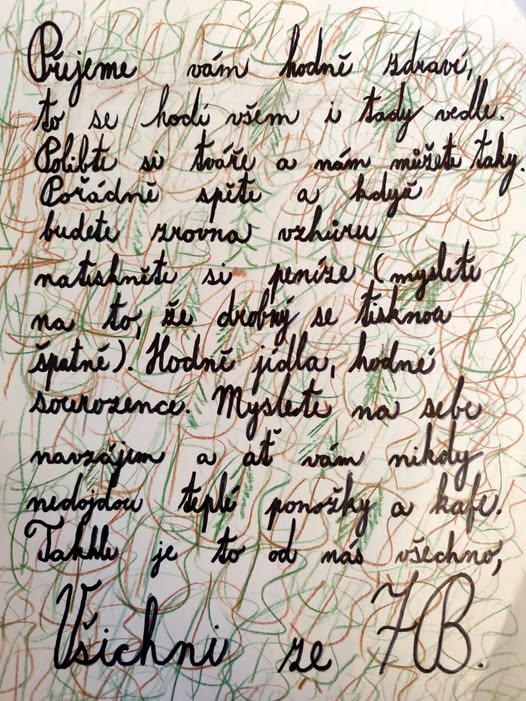 Přejeme vám hodně zdraví,
to se hodí všem i tady vedle.
Polibte si tváře a nám můžete taky.
Pořádně spěte a když
budete zrovna vzhůru
natiskněte si peníze (myslete
na to, že drobný se tisknou
špatně). Hodně jídla, hodné
sourozence. Myslete na sebe
navzájem a ať vám nikdy
nedojdou teplé ponožky a kafe.
Takhle je to od nás všechno,
Všichni ze 7B.